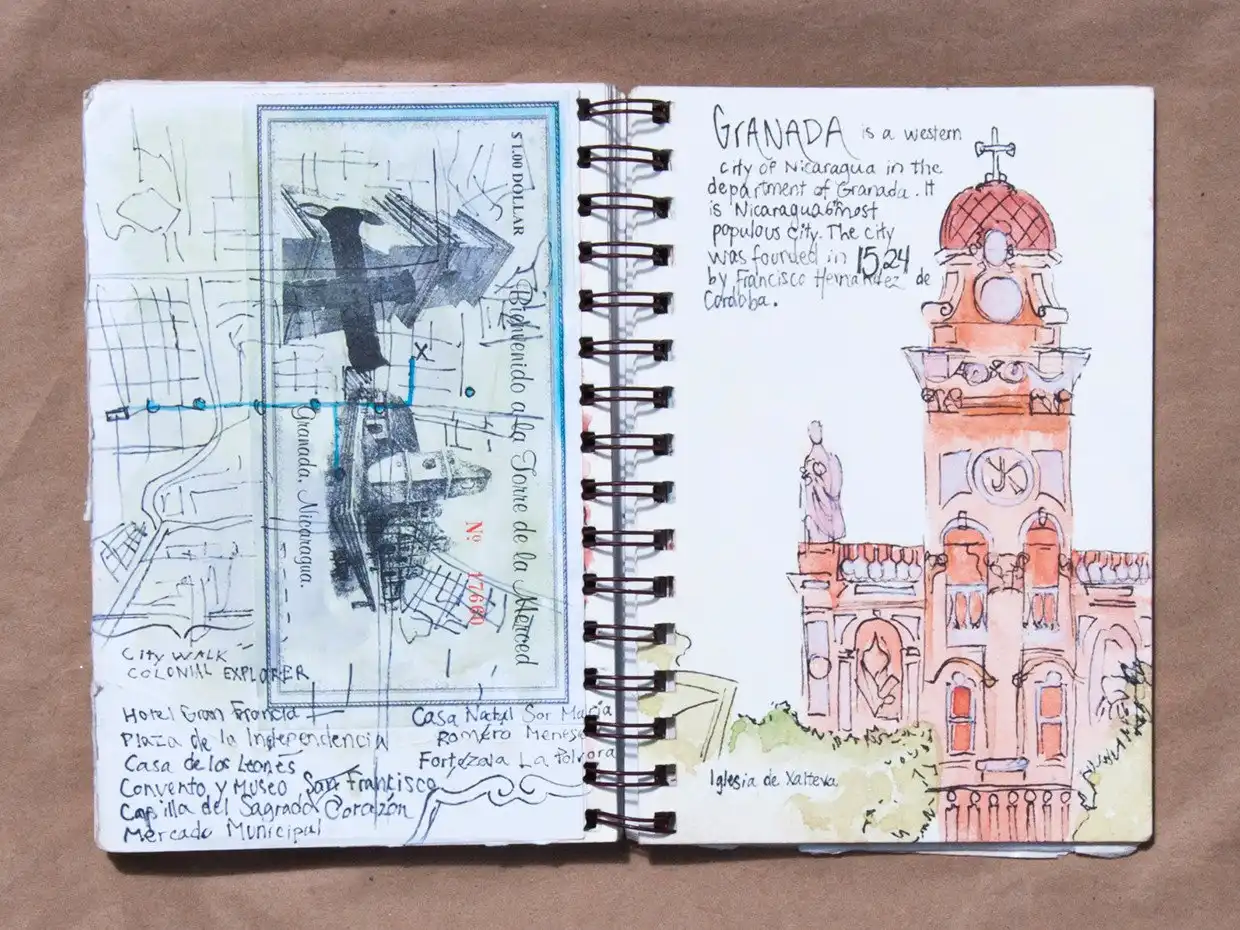 $1.00 DOLLAR
Bienvenido a la Torre de la Merced
Granada, Nicaragua.
Nº 1760
X
City WALK
COLONIAL EXPLORER
Hotel Gran Francia
Plaza de la Independencia
Casa de los Leones
Convento y Museo San Francisco
Capilla del Sagrado Corazón
Mercado Municipal
Casa Natal Sor María
Romero Meneses
Fortezala La Polvora
GRANADA is a western
city of Nicaragua in the
department of Granada. It
is Nicaragua6most
populous city. The city
was founded in 1524
by Francisco Hernandez de
Cordoba.
Iglesia de Xalteva